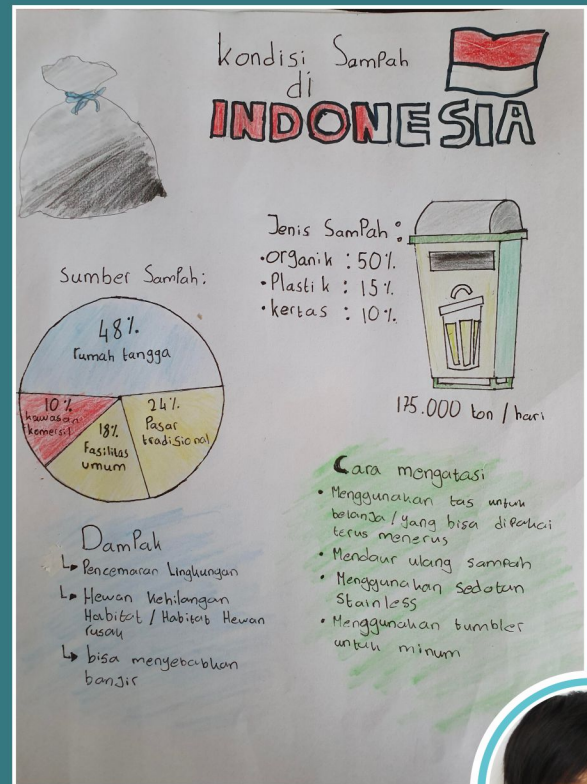 kondisi Sampah
di
INDONESIA
Jenis Sampah :
• organik : 50%
• Plastik : 15%
• kertas : 10%
175.000 ton / hari
Sumber Sampah:
48%
rumah tangga
10%
kawasan
komersil
18%
Fasilitas
umum
24%
Pasar
tradisional
Dampak
↳ Pencemaran Lingkungan
↳ Hewan Kehilangan
Habitat / Habitat Hewan
rusak
↳ bisa menyebabkan
banjir
Cara mengatasi
• Menggunakan tas untuk
belanja / yang bisa dipakai
terus menerus
• Mendaur ulang sampah
• Menggunakan sedotan
Stainless
• Menggunakan tumbler
untuk minum